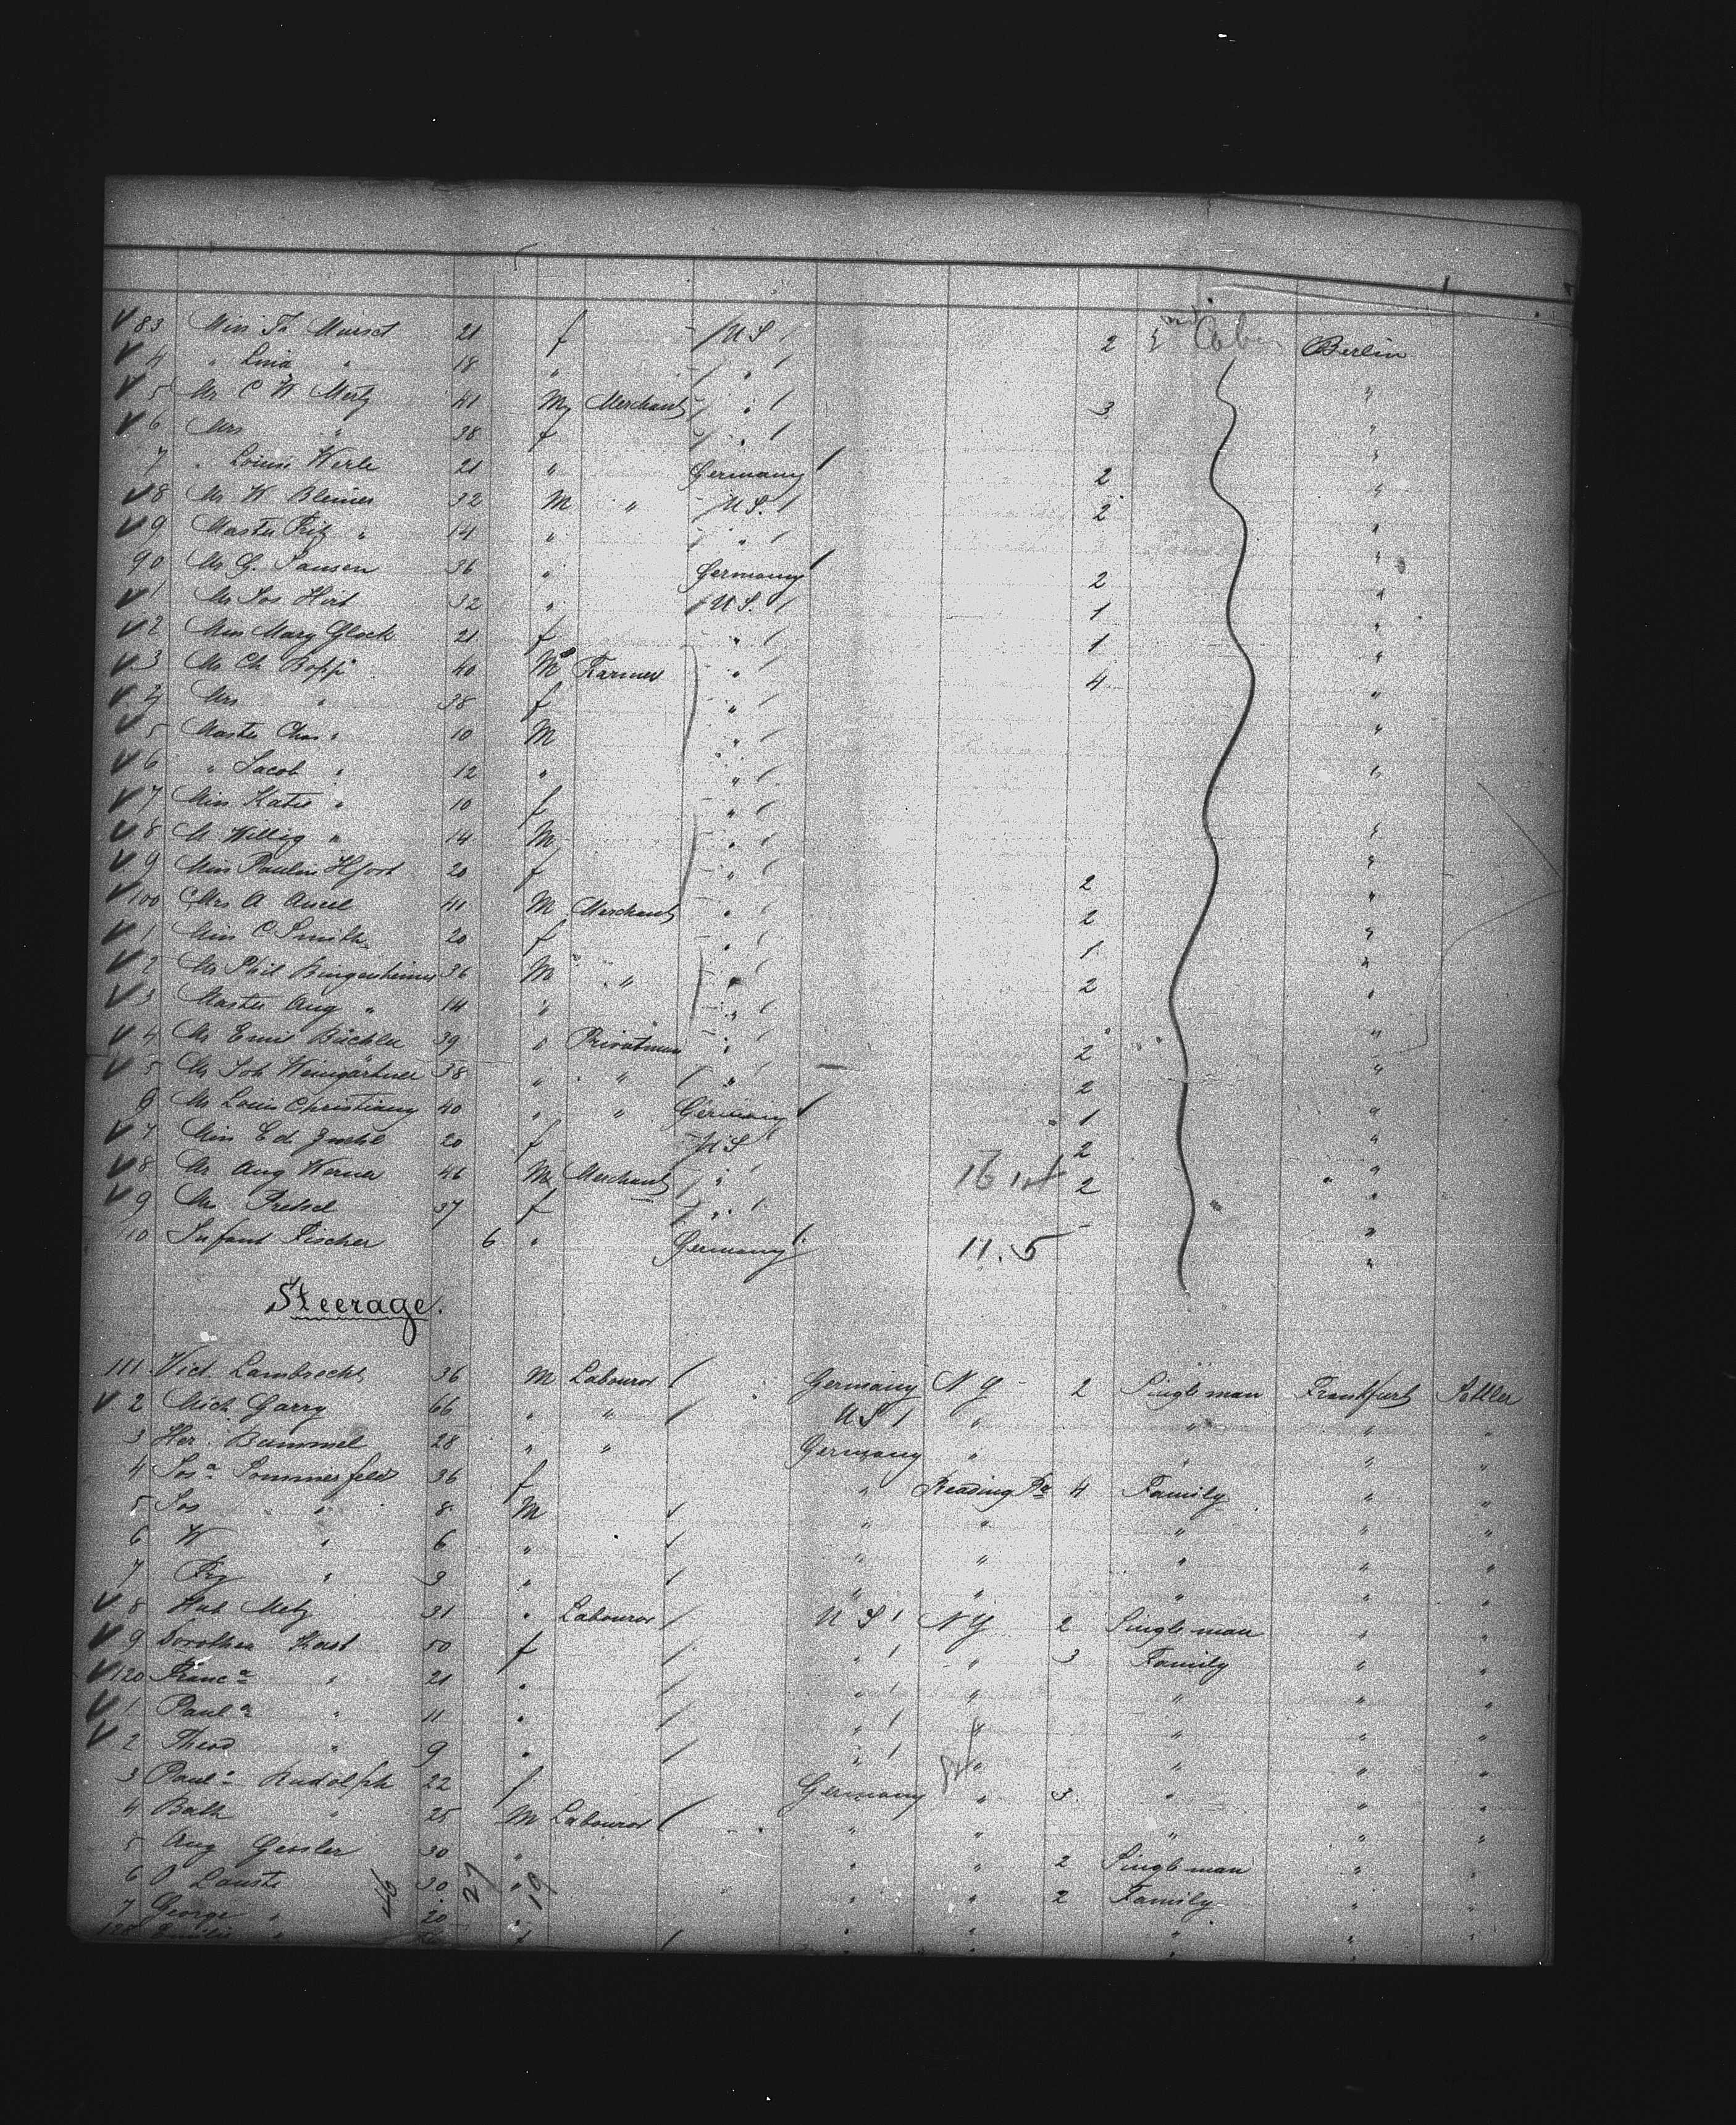 83 Miss Fr. Mursct 21 f U.S. 2 Cabin Berlin
4 " Lina " 18 " " "
5 Mr C W Mertz 41 M Merchant " 3 "
6 Mrs " 38 f " "
7 " Louise Werle 21 " Germany 2 "
8 Mr W Bleimer 32 M " U.S. 2 "
9 Master Fritz " 14 " " "
90 Mr G. Jansen 36 " Germany 2 "
1 Mr Jos Hirt 32 " U.S. 1 "
2 Miss Mary Glock 21 f " 1 "
3 Mr Ch Bopp 40 M Farmer " 4 "
4 Mrs " 38 f " "
5 Master Chas " 10 M " "
6 " Jacob " 12 " " "
7 Miss Katie " 10 f " "
8 M Willig " 14 M " "
9 Miss Paulin Hjort 20 f " 2 "
100 Mrs A 41 M Merchant " 2 "
1 Miss C Smith 20 f " 1 "
2 Mr Phil Bingenheimer 36 M " " 2 "
3 Master Aug " 14 " " "
4 Mr Emil Büchler 39 " Privatman " 2 "
5 Mr Joh Weingärtner 38 " " " 2 "
6 Mr Louis Christiany 40 " " Germany 1 "
7 Miss Ed. 20 f U.S. 2 "
8 Mr Aug Werner 46 M Merchant " 2 "
9 Mrs Pretsel 37 f " "
10 Infant Fischer 6 " Germany 11.5 "
Steerage.
111 Vict. Lambrecht 36 M Labourer Germany N Y 2 Single man Frankfurt Adler
2 Mich Garry 66 " " U S " " " "
3 Her. Bammel 28 " " Germany " " " "
4 Josa Sommerfeld 36 f " Reading Pa 4 Family " "
5 Jos " 8 M " " " " "
6 W " 6 " " " " " "
7 " 3 " " " " " "
8 Metz 31 " Labourer U S N Y 2 Single man " "
9 Dorothea Kast 50 f " " 3 Family " "
120 Franca " 21 " " " " " "
1 Paula " 11 " " " " " "
2 Theod " 9 " " " " " "
3 Paula Rudolph 22 f Germany " 3 " " "
4 Balth " 25 M Labourer " " " " "
5 Aug Gessler 30 " " " 2 Single man " "
6 O Lauste 30 " " " 2 Family " "
7 George " 20 " " " " " "
128 Emilie " f " " " " "
46 27 19